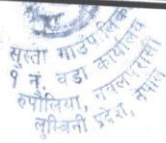 सुस्ता गाउँपालिका
१ नं. वडा कार्यालय
रुपौलिया, नवलपरासी
लुम्बिनी प्रदेश, नेपाल